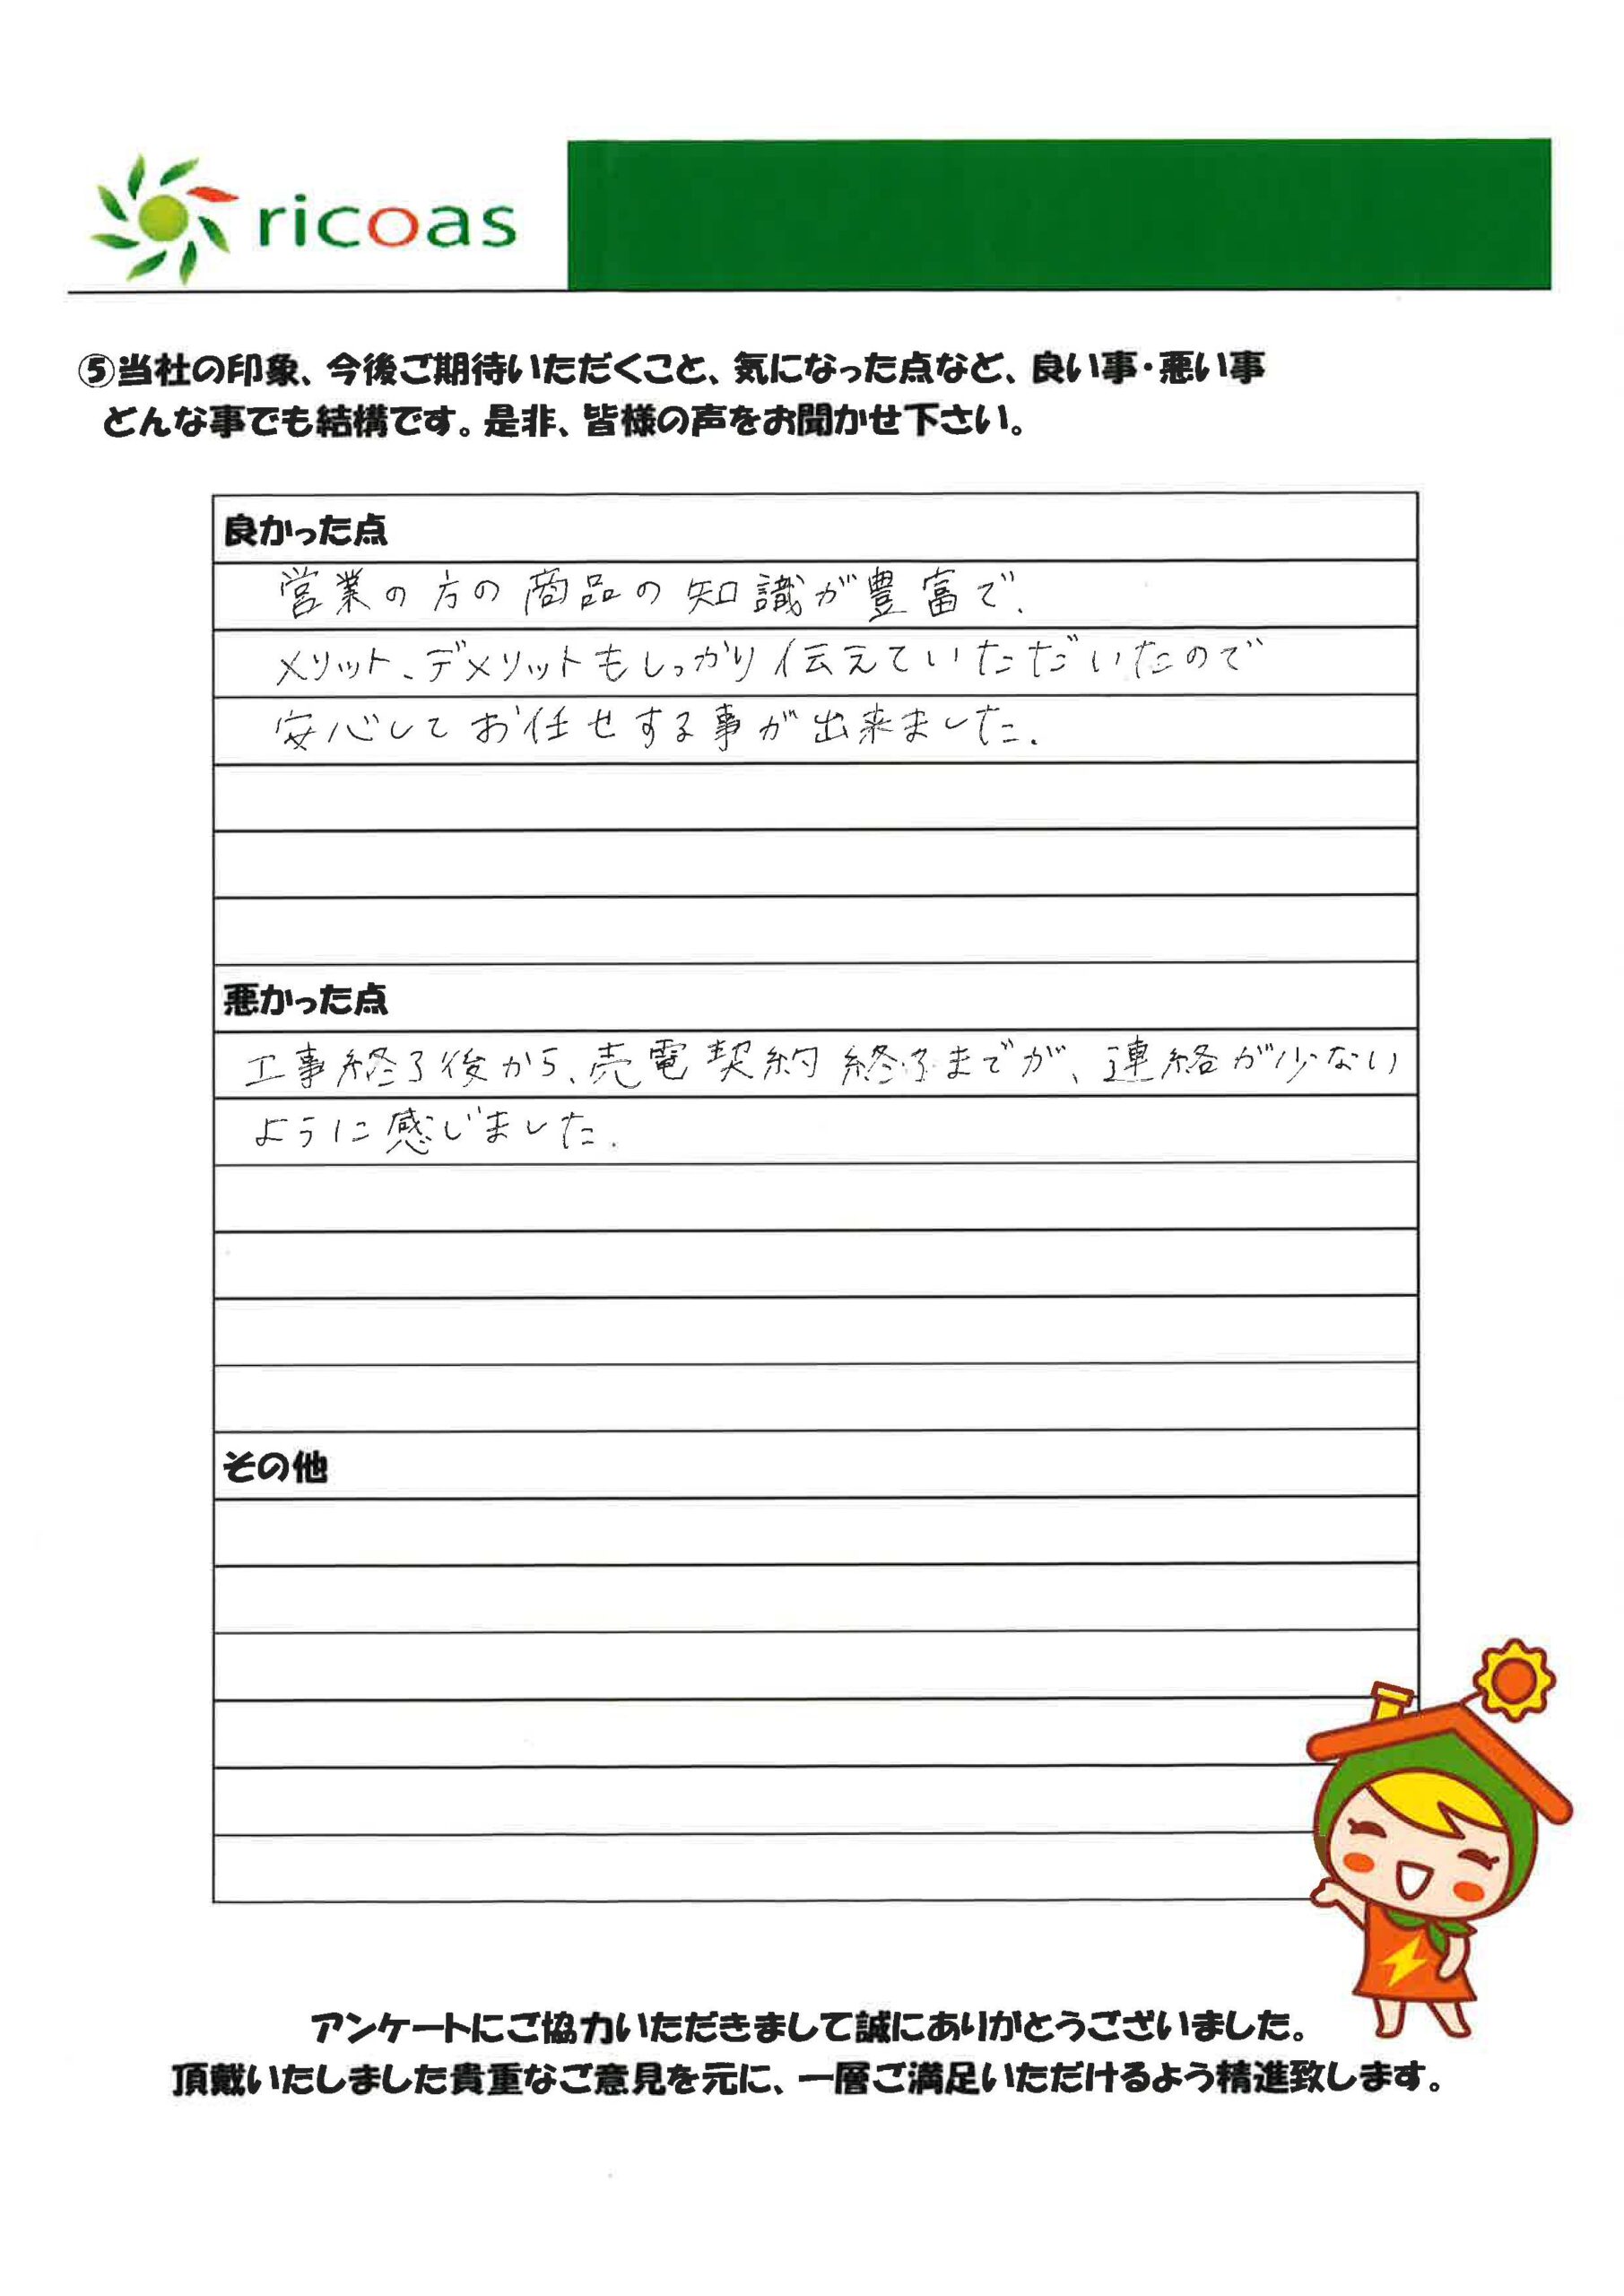 ricoas
⑤当社の印象、今後ご期待いただくこと、気になった点など、良い事・悪い事
どんな事でも結構です。是非、皆様の声をお聞かせ下さい。
良かった点
営業の方の商品の知識が豊富で、
メリット、デメリットもしっかり伝えていただいたので
安心してお任せする事が出来ました。
悪かった点
工事終了後から、売電契約終了までが、連絡が少ない
ように感じました。
その他
アンケートにご協力いただきまして誠にありがとうございました。
頂戴いたしました貴重なご意見を元に、一層ご満足いただけるよう精進致します。